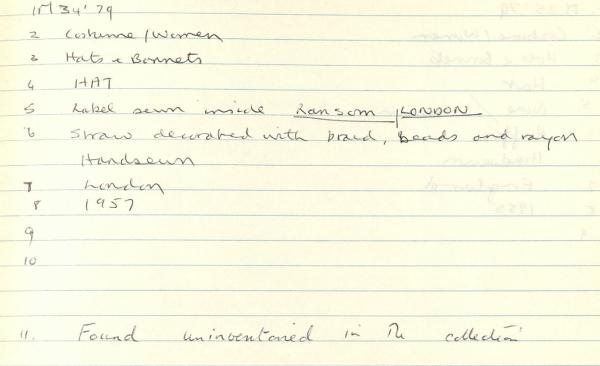 1 M 34' 79
2 Costume / Women
3 Hats & Bonnets
4 HAT
5 Label sewn inside Ransom / LONDON
6 Straw decorated with braid, Beads and rayon
Handsewn
7 London
8 1957
9
10
11. Found uninventoried in the collection